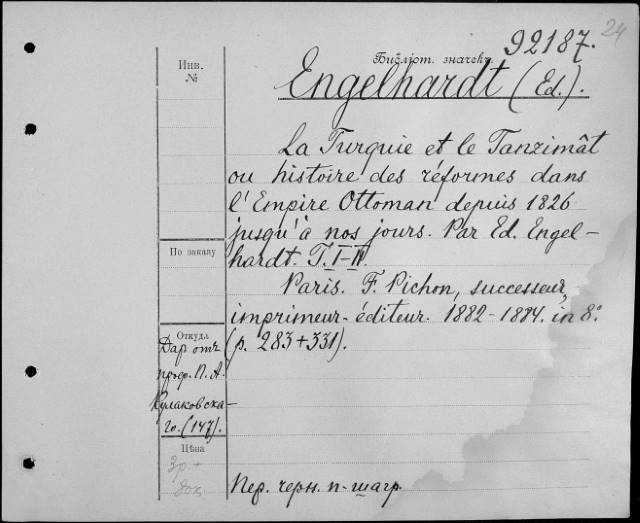 24
92187.
Инв.
№
Библіот. значекъ
Engelhardt (Ed.).
La Turquie et le Tanzimât
ou histoire des réformes dans
l'Empire Ottoman depuis 1826
jusqu'à nos jours. Par Ed. Engel-
hardt. T. I-II.
По заказу
Paris. F. Pichon, successeur,
imprimeur-éditeur. 1882-1884. in 8°
(p. 283+331).
Откуда
Даръ отъ
проф. П. А.
Кулаковска-
го. (147).
Цѣна
3р.+
Пер. черн. п-шагр.